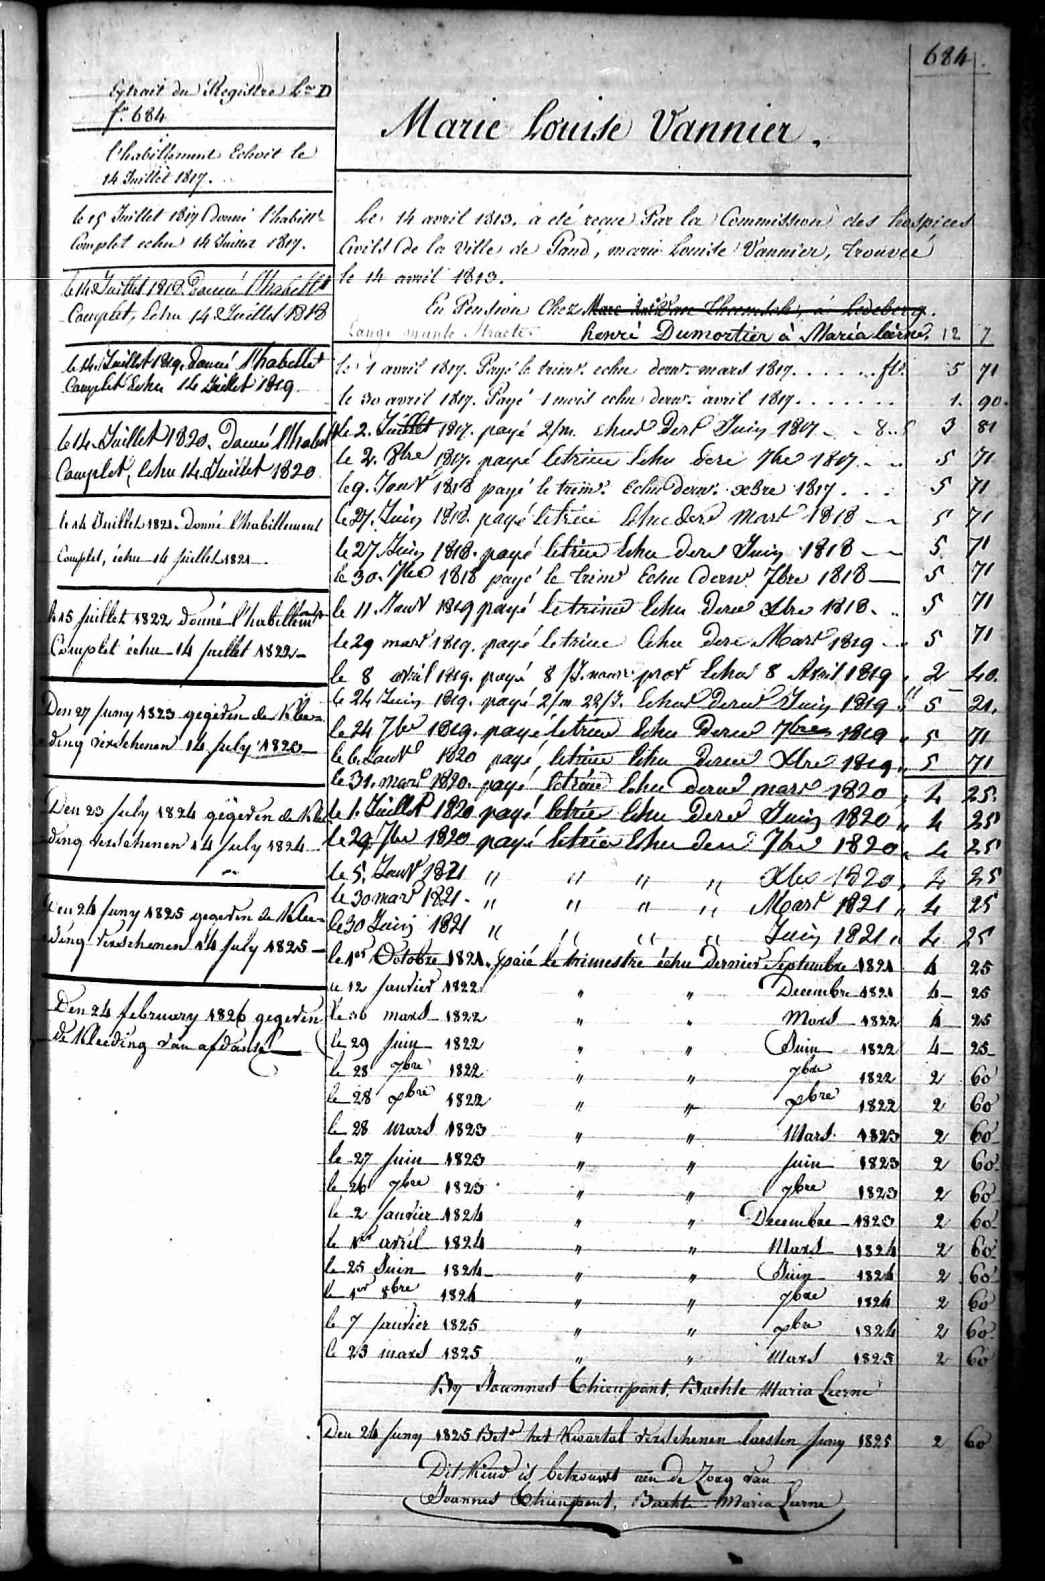 684.
Extrait du Registre Lra D
f° 684
l'habillement Echoit le
14 Juillet 1817.
le 15 Juillet 1817 donné l'habillt
Complet echu 14 Juillet 1817.
le 14 Juillet 1818. donné l'habillt
Complet, Echu 14 Juillet 1818
le 14 Juillet 1819. donné l'habillt
Complet Echu 14 Juillet 1819
le 14 Juillet 1820. donné l'habillt
Complet, Echu 14 Juillet 1820
le 14 Juillet 1821. Donné l'habillement
Complet, échu 14 juillet 1821
le 15 juillet 1822 donné l'habillement
Complet échu 14 juillet 1822
Den 27 Juny 1823 gegeven de Klee-
ding verschenen 14 July 1823
Den 23 July 1824 gegeven de Klee
ding verschenen 14 July 1824
Den 24 Juny 1825 gegeven de Klee-
ding verschenen 14 July 1825
Den 24 february 1826 gegeven
de Kleeding van afdanse
Marie Louise Vannier.
le 14 avril 1813. a été reçue Par la Commission des hospices
Civils de la Ville de Gand, marie Louise Vannier, trouvée
le 14 avril 1813.
En Pension Chez à Ledeberg.
Henri Dumortier à Maria leerne. 12 7
le 1 avril 1817. Payé le trimr. echu dernr. mars 1817. fls. 5 71
le 30 avril 1817. Payé 1 mois echu dernr. avril 1817. 1. 90.
le 2. Juillet 1817. payé 2/m. echus dere Juin 1817 3 81
le 2. 8bre 1817. payé le trime Echu dere 7bre 1817 5 71
le 9. Janvr 1818 payé le trimr. Echu dernr. xbre 1817. 5 71
le 27. Juin 1818. payé le trie Echu dere Mars 1818 5 71
le 27 Juin 1818. payé le trime Echu dere Juin 1818 5. 71
le 30. 7bre 1818 payé le trimr Echu dernr. 7bre 1818 5 71
le 11 Janvr 1819 payé le trime Echu dere Xbre 1818. 5 71
le 29 mars 1819. payé le trime Echu dere Mars 1819 5 71
le 8 avril 1819. payé 8 /J. Echu 8 Avril 1819 2 40.
le 24 Juin 1819. payé 2/m 22/J. Echus dere Juin 1819 " 5 21.
le 24 7bre 1819. payé le trime Echu Dere 7bre 1819 " 5 71
le 6. Janvr 1820 payé, le trime Echu dere Xbre 1819 " 5 71
le 31. mars 1820. payé le trime Echu dere mars 1820 4 25.
le 1. Juillet 1820 payé le trie Echu Dere Juin 1820 " 4 25
le 29 7bre 1820 payé le trie Echu dere 7bre 1820 " 4 25
le 5. Janvr 1821 " " " " Xbre 1820 " 4 25
le 30 mars 1821. " " " " Mars 1821 " 4 25
le 30 Juin 1821 " " " " Juin 1821 " 4 25
le 1er Octobre 1821. payé le trimestre échu dernier Septembre 1821 4 25
le 12 janvier 1822 " " Decembre 1821 4 25
le 26 mars 1822 " " Mars 1822 4 25
le 29 juin 1822 " " Juin 1822 4 25
le 28 7bre 1822 " " 7bre 1822 2 60
le 28 xbre 1822 " " xbre 1822 2 60
le 28 Mars 1823 " " Mars 1823 2 60
le 27 juin 1823 " " juin 1823 2 60
le 26 7bre 1823 " " 7bre 1823 2 60
le 2 janvier 1824 " " Decembre 1823 2 60
le 1er avril 1824 " " Mars 1824 2 60
le 25 Juin 1824 " " Juin 1824 2 60
le 1er 8bre 1824 " " 7bre 1824 2 60
le 7 janvier 1825 " " xbre 1824 2 60
le 23 mars 1825 " " Mars 1825 2 60
By Joannes Thienpont, Bachte Maria Leerne
Den 24 Juny 1825 Bete het Kwartal verschenen laesten Juny 1825 2 60
Dit Kind is betrouwt aen de Zorg van
Joannes Thienpont, Bachte Maria Leerne